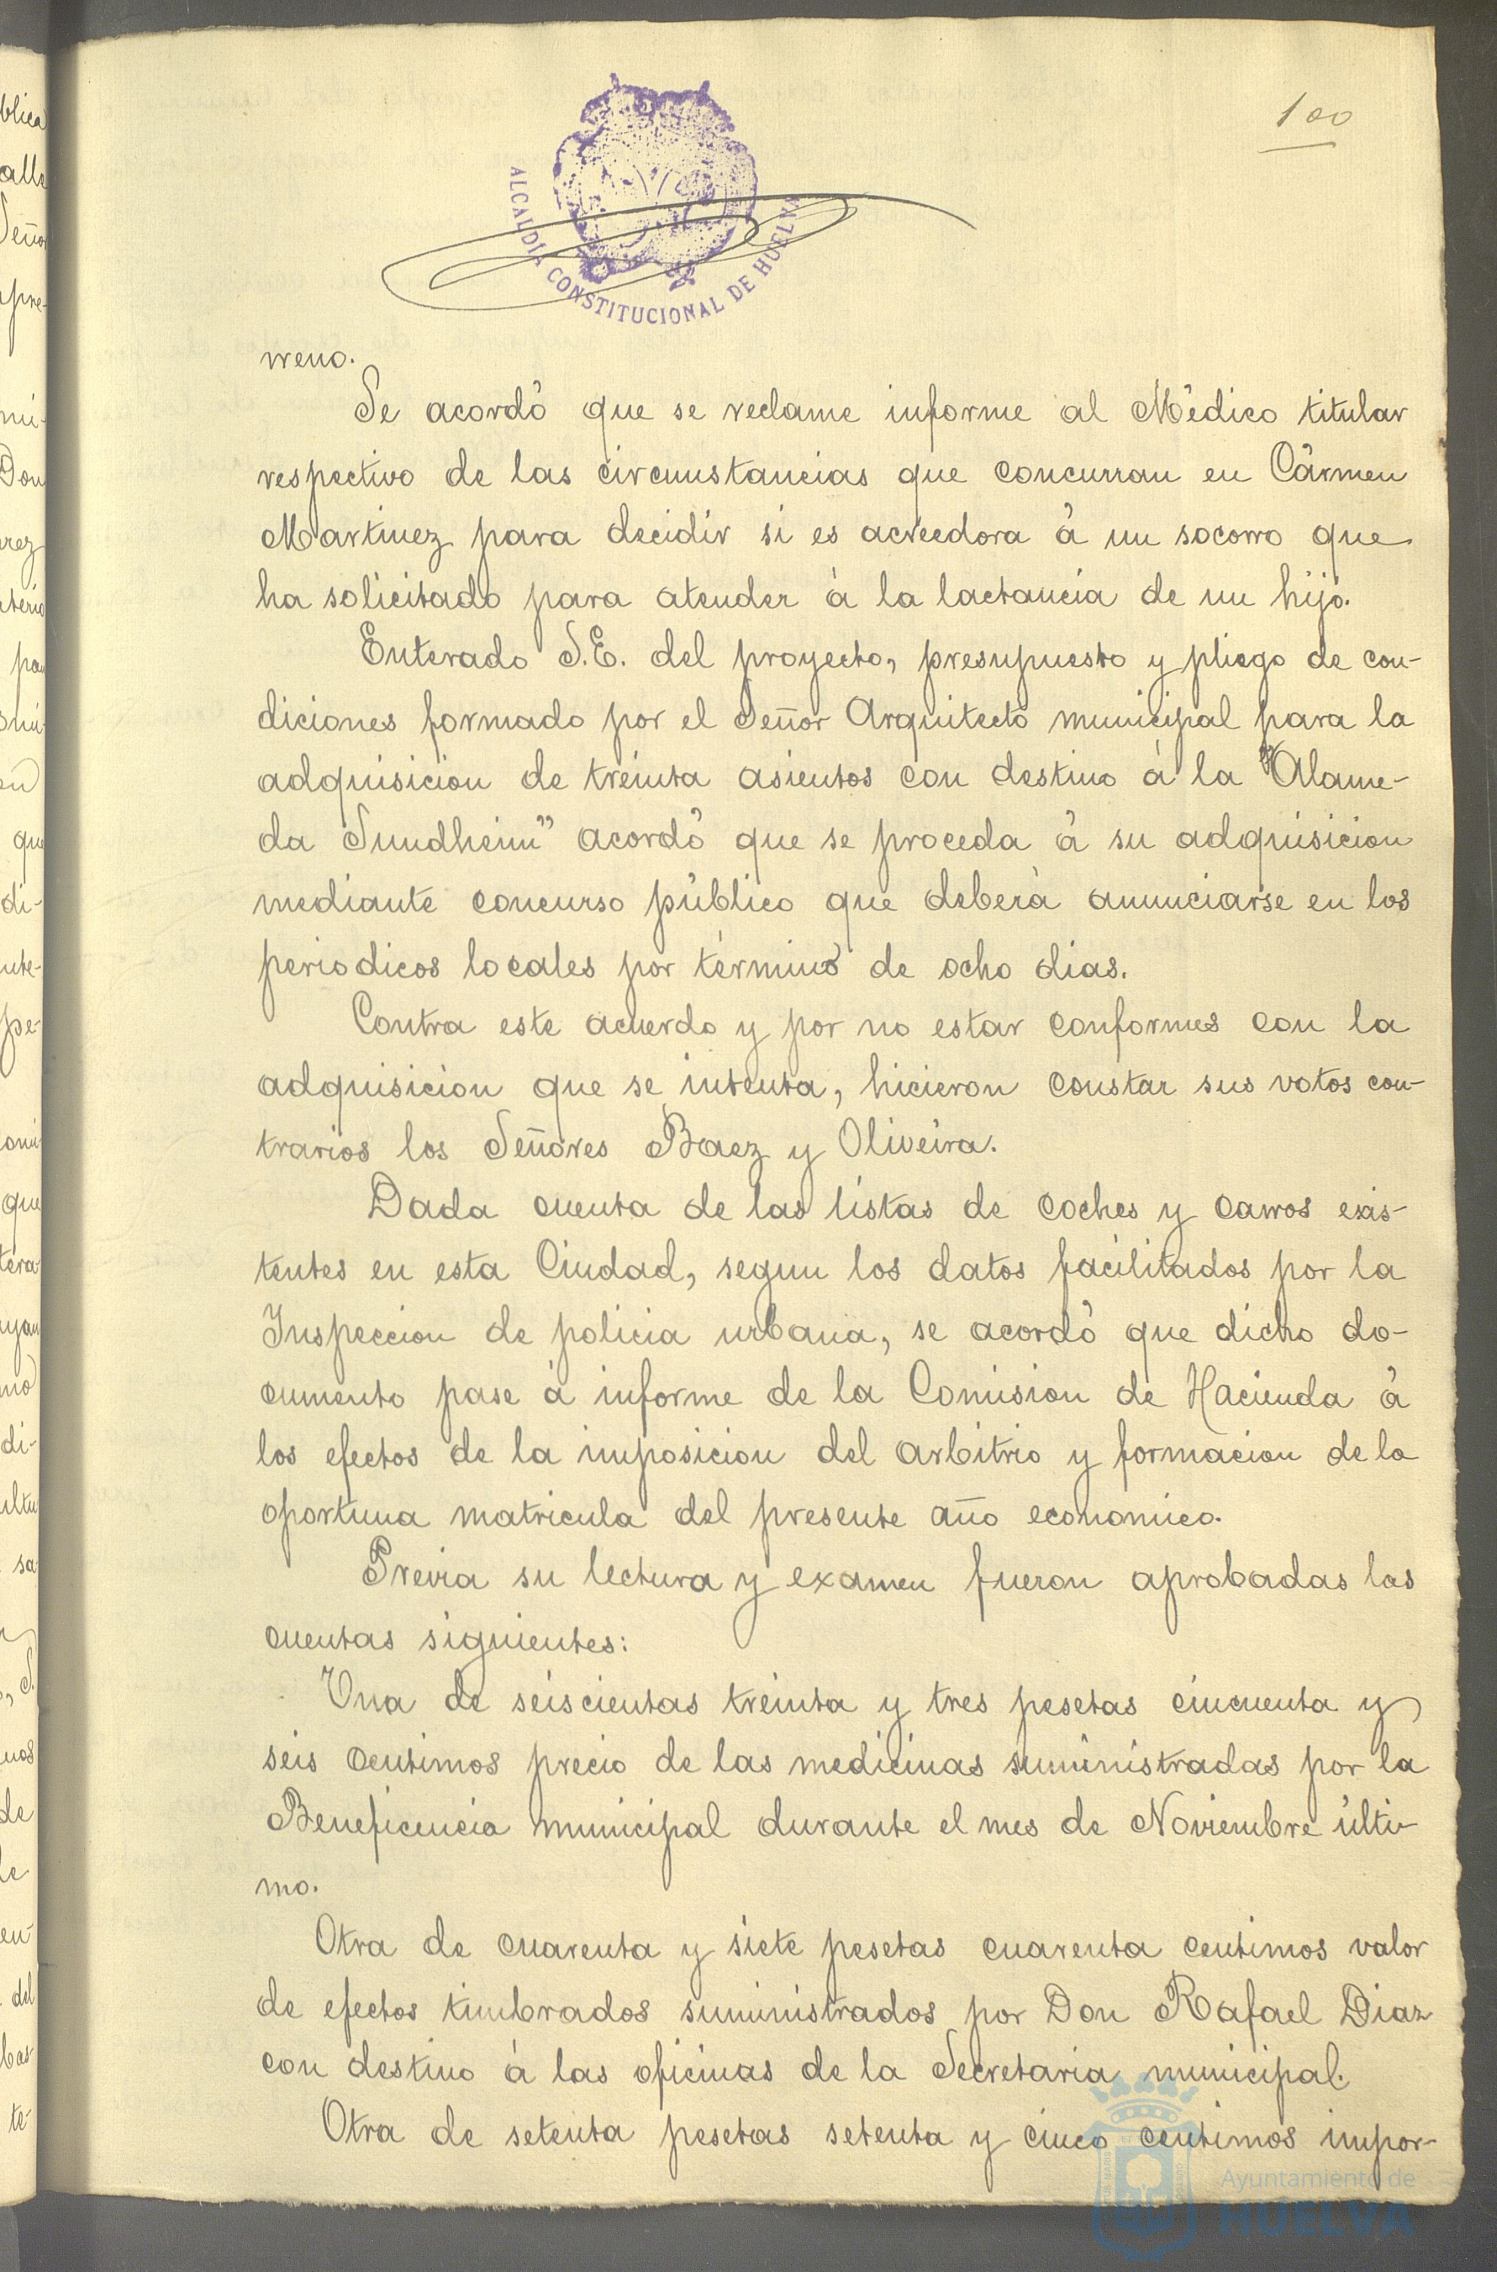 100
ALCALDIA CONSTITUCIONAL DE HUELVA
rreno.
Se acordó que se reclame informe al Médico titular
respectivo de las circunstancias que concurran en Cármen
Martinez para decidir si es acreedora á un socorro que
ha solicitado para atender á la lactancia de un hijo.
Enterado S.E. del proyecto, presupuesto y pliego de con-
diciones formado por el Señor Arquitecto municipal para la
adquisicion de treinta asientos con destino á la "Alame-
da Sundheim" acordó que se proceda á su adquisicion
mediante concurso público que deberá anunciarse en los
periodicos locales por término de ocho dias.
Contra este acuerdo y por no estar conformes con la
adquisicion que se intenta, hicieron constar sus votos con-
trarios los Señores Baez y Oliveira.
Dada cuenta de las listas de coches y carros exis-
tentes en esta Ciudad, segun los datos facilitados por la
Inspeccion de policia urbana, se acordó que dicho do-
cumento pase á informe de la Comision de Hacienda á
los efectos de la imposicion del arbitrio y formacion de la
oportuna matricula del presente año economico.
Previa su lectura y examen fueron aprobadas las
cuentas siguientes:
Una de seiscientas treinta y tres pesetas cincuenta y
seis centimos precio de las medicinas suministradas por la
Beneficencia municipal durante el mes de Noviembre últi-
mo.
Otra de cuarenta y siete pesetas cuarenta centimos valor
de efectos timbrados suministrados por Don Rafael Diaz
con destino á las oficinas de la Secretaria municipal.
Otra de setenta pesetas setenta y cinco centimos impor-
Ayuntamiento de
HUELVA